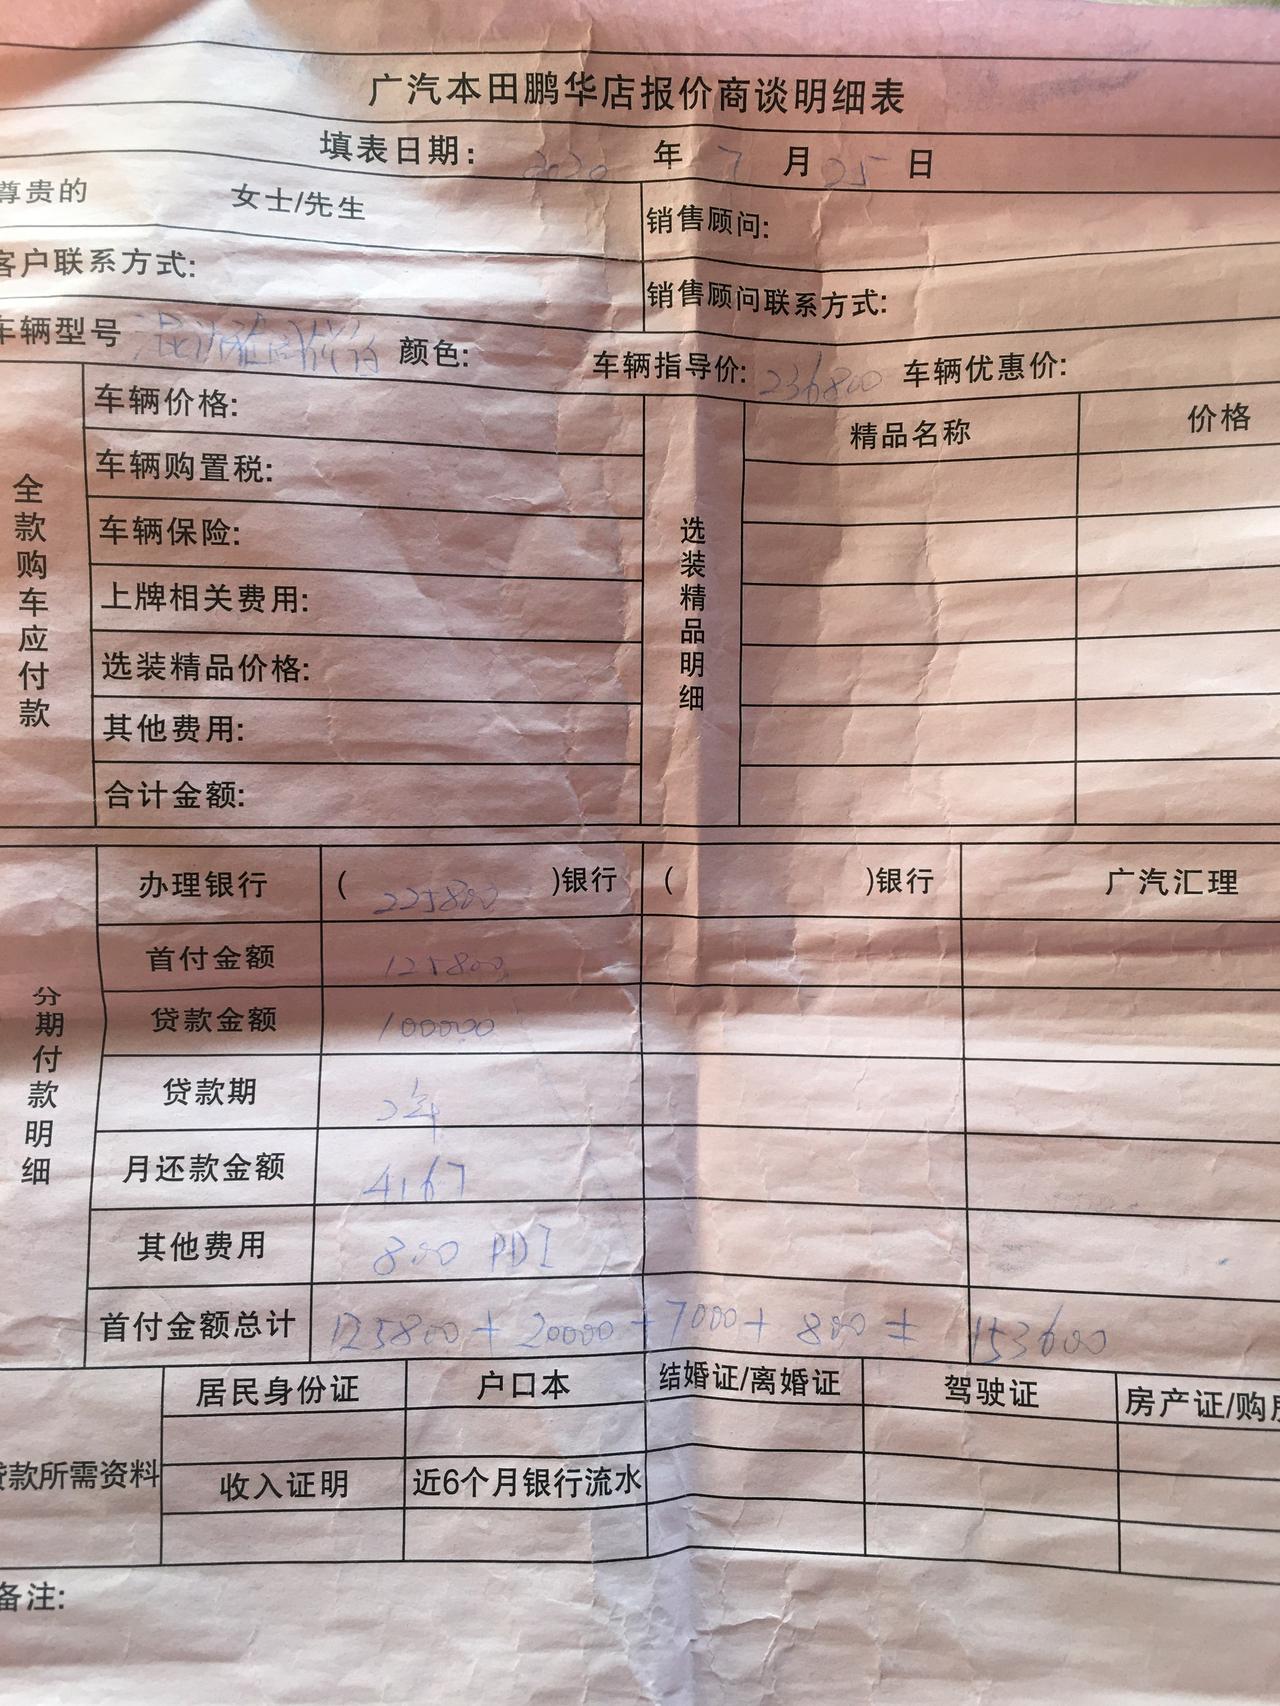 广汽本田鹏华店报价商谈明细表
填表日期: 2020 年 7 月 25 日
尊贵的 女士/先生 销售顾问:
客户联系方式: 销售顾问联系方式:
车辆型号 颜色: 车辆指导价: 236800 车辆优惠价:
全款购车应付款
车辆价格:
车辆购置税:
车辆保险:
上牌相关费用:
选装精品价格:
其他费用:
合计金额:
选装精品明细
精品名称 价格
分期付款明细
办理银行 ( 225800 )银行 ( )银行 广汽汇理
首付金额 125800
贷款金额 100000
贷款期 2年
月还款金额 4167
其他费用 800 PDI
首付金额总计 125800 + 20000 + 7000 + 800 = 153600
贷款所需资料
居民身份证 户口本 结婚证/离婚证 驾驶证 房产证/购房
收入证明 近6个月银行流水
备注: